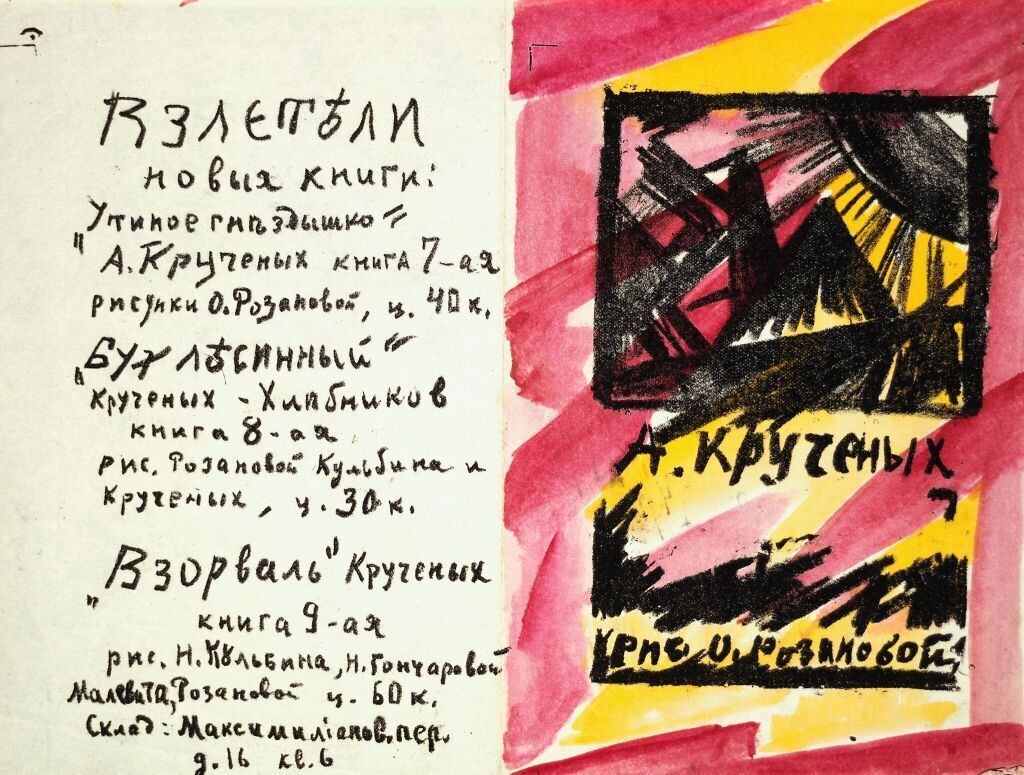 Взлетѣли
новыя книги:
"Утиное гнѣздышко"
А. Крученых книга 7-ая
рисунки О. Розановой, ц. 40 к.
"Бух лѣсинный"
Крученых - Хлѣбников
книга 8-ая
рис. Розановой Кульбина и
Крученых, ц. 30 к.
"Взорваль" Крученых
книга 9-ая
рис. Н. Кульбина, Н. Гончаровой
Малевича, Розановой ц. 60 к.
Склад: Максимиліанов. пер.
д. 16 кв. 6
А. Крученых
рис. О. Розановой